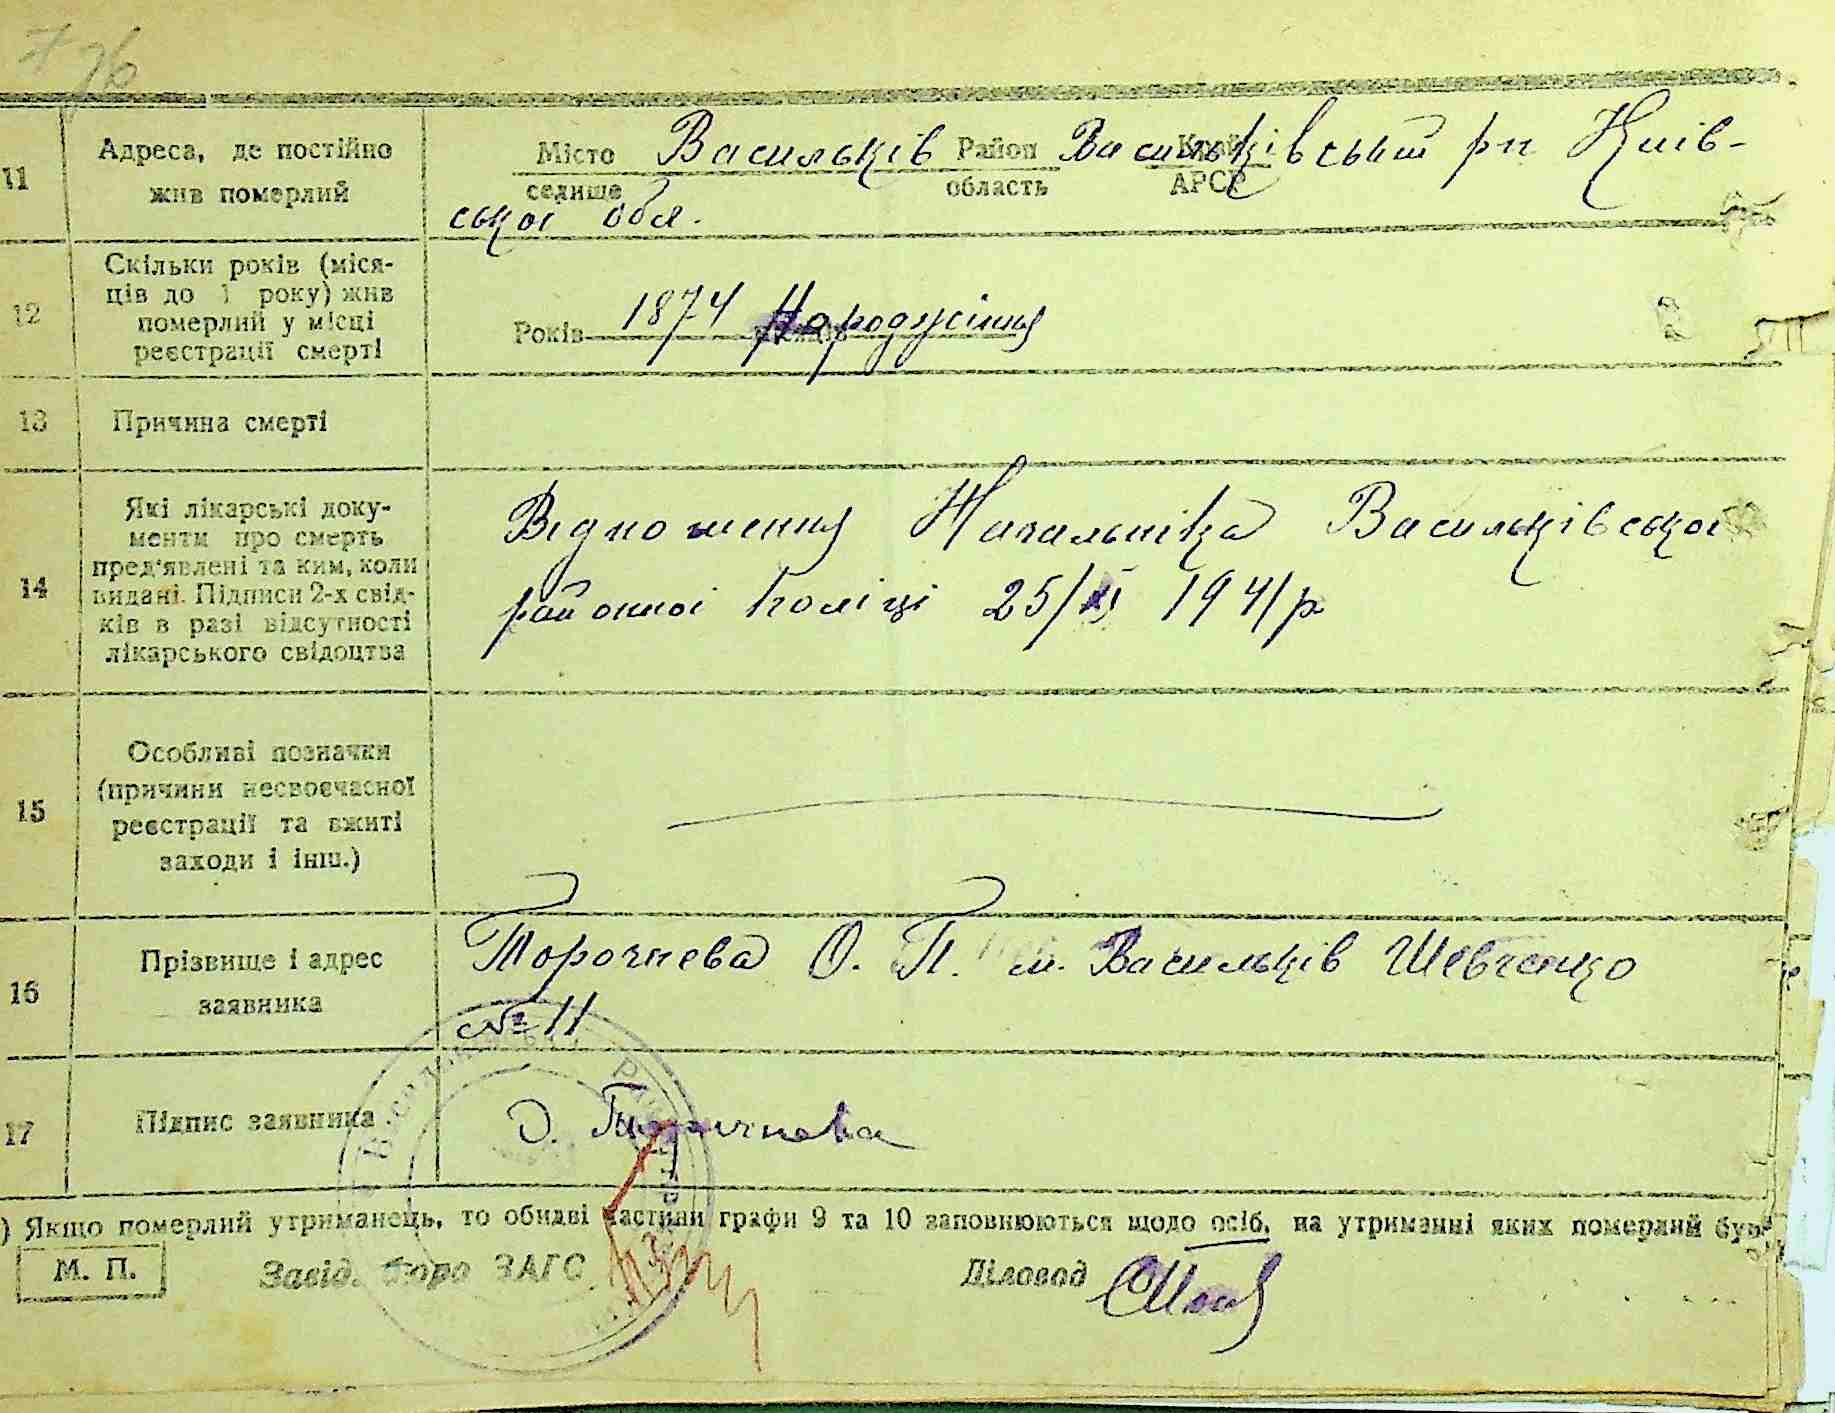 76
11
Адреса, де постійно
жив померлий
Місто Васильків Район Васильківський рн Київ-
селище область АРСР
ської обл.
12
Скільки років (міся-
ців до 1 року) жив
померлий у місці
реєстрації смерті
Років 1874 Народжіння
13
Причина смерті
14
Які лікарські доку-
менти про смерть
пред'явлені та ким, коли
видані. Підписи 2-х свід-
ків в разі відсутності
лікарського свідоцтва
Відношення Начальніка Васильківської
районної поліці 25/XI 1941р
15
Особливі позначки
(причини несвоєчасної
реєстрації та вжиті
заходи і інш.)
16
Прізвище і адрес
заявника
Торочнева О. П. м. Васильків Шевченко
№ 11
17
Підпис заявника
О. Торочнева
) Якщо померлий утриманець, то обидві частини графи 9 та 10 заповнюються щодо осіб, на утриманні яких померлий був.
М. П.
Завід. бюро ЗАГС
Діловод